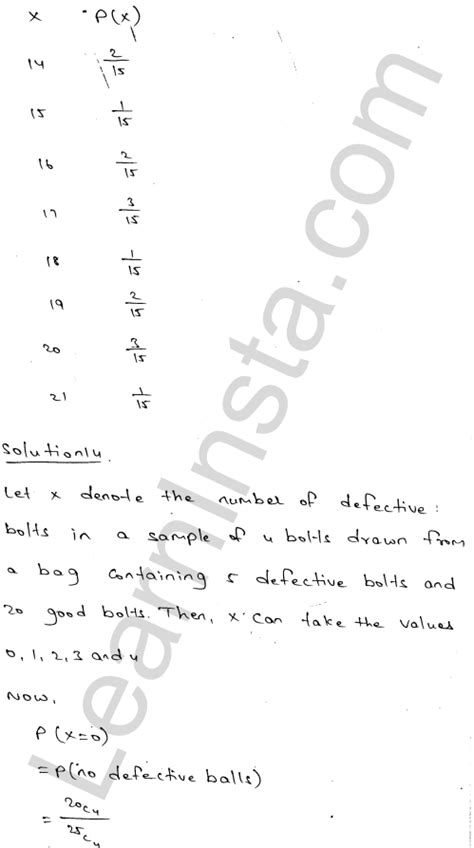 x P(x)
14 2/15
15 1/15
16 2/15
17 3/15
18 1/15
19 2/15
20 3/15
21 1/15
Solution14.
Let x denote the number of defective :
bolts in a sample of 4 bolts drawn from
a bag containing 5 defective bolts and
20 good bolts. Then, x can take the values
0, 1, 2, 3 and 4
Now,
P (x=0)
= P(no defective balls)
= 20C4 / 25C4
LearnInsta.com